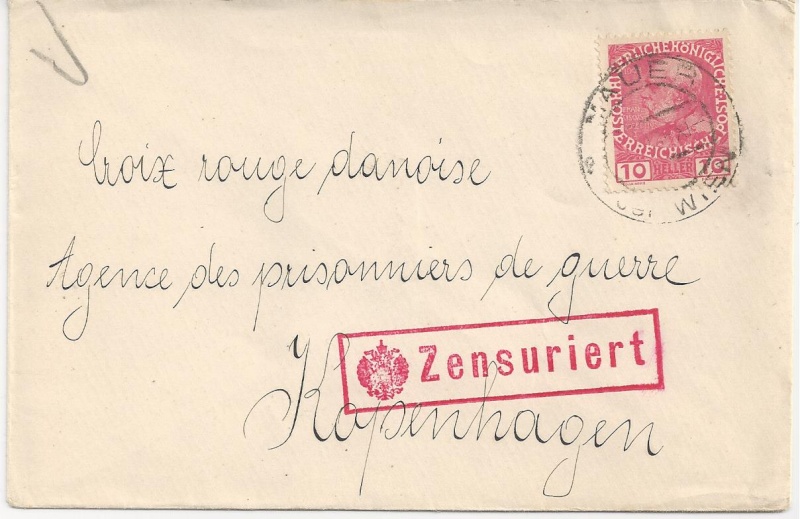 KAISERLICHE KÖNIGLICHE
POST
ÖSTERREICHISCHE
10 HELLER 10
MAUER
WIEN
Croix rouge danoise
Agence des prisonniers de guerre
Zensuriert
Kopenhagen